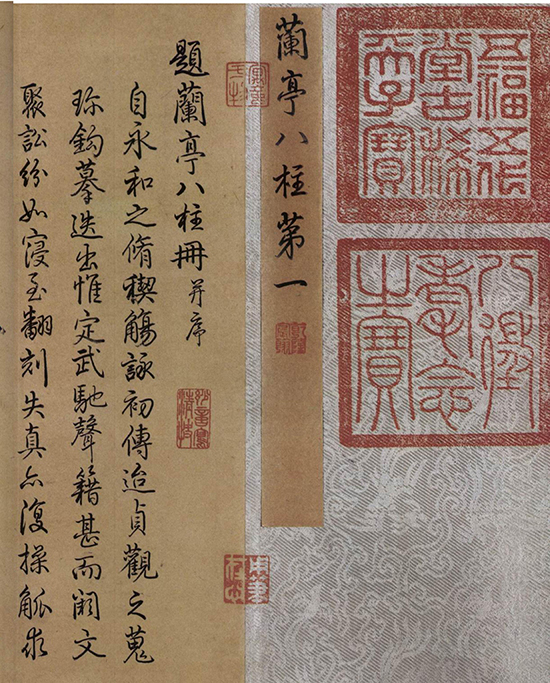 五福五代
堂古稀
天子寶
八徵
耄念
之寶
蘭亭八柱第一
題蘭亭八柱冊并序
自永和之脩禊觴詠初傳迨貞觀之蒐
珎鈎摹迭出惟定武馳聲籍甚而闕文
聚訟紛如寖至翻刻失真亦復操觚求
用筆在心